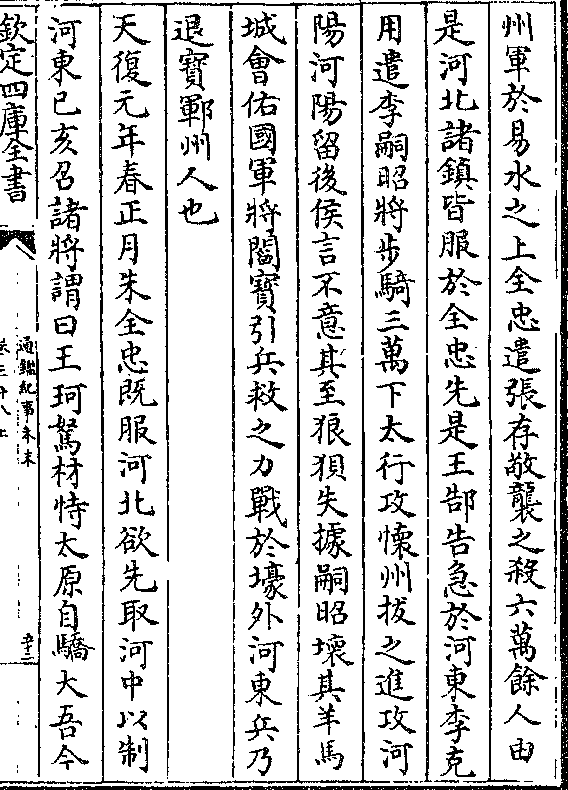 州軍於易水之上全忠遣張存敬襲之殺六萬餘人由
是河北諸鎮皆服於全忠先是王郜告急於河東李克
用遣李嗣昭將步騎三萬下太行攻懷州拔之進攻河
陽河陽留後侯言不意其至狼狽失據嗣昭壞其羊馬
城會佑國軍將閻寶引兵救之力戰於壕外河東兵乃
退寶鄆州人也
天復元年春正月朱全忠既服河北欲先取河中以制
河東己亥召諸將謂曰王珂駑材恃太原自驕大吾今
欽定四庫全書
通鑑紀事本末
卷三十八上